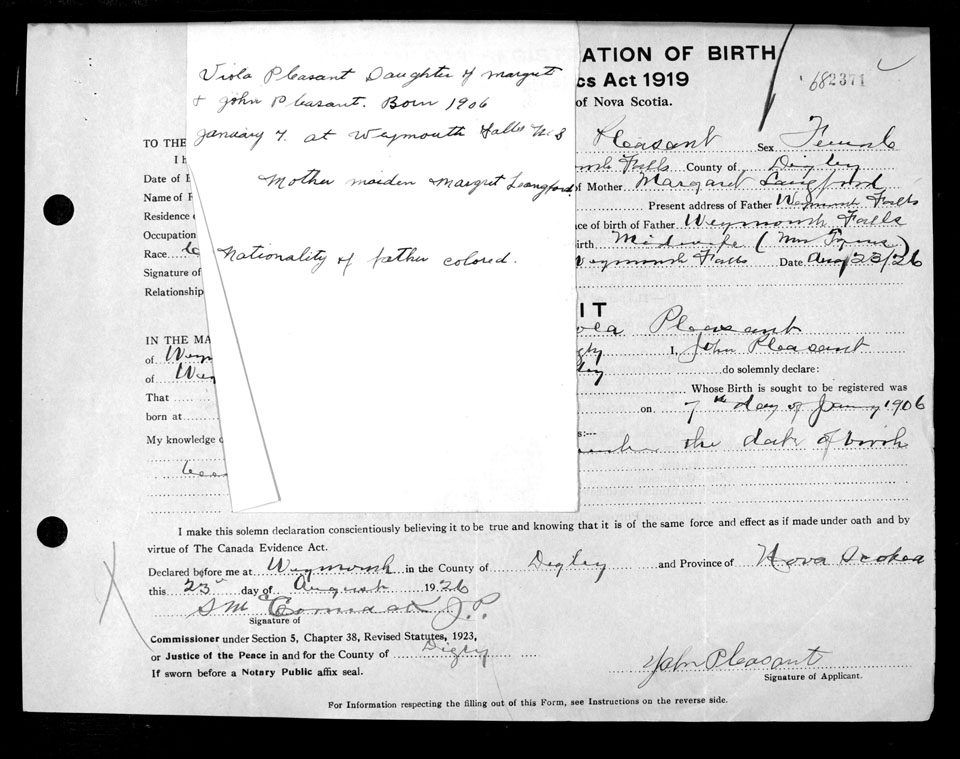 Viola Pleasant Daughter of Margret
+ john Pleasant. Born 1906
january 7. at Weymouth Falls N.S
Mother maiden Margret Leangford
Nationality of father colored.
ATION OF BIRTH
cs Act 1919
of Nova Scotia.
682371
TO THE
Pleasant Sex Female
I h
Falls County of Digby
Date of B
of Mother Margaret Langford
Name of F
Present address of Father Weymouth Falls
Residence
ce of birth of Father Weymouth Falls
Occupation
irth Midwife (Mrs
Race
Weymouth Falls Date Aug 23/26
Signature of
Relationship
IT
Pleasant
IN THE MA
of Wey
I, John Pleasant
of Wey
do solemnly declare:
That
Whose Birth is sought to be registered was
born at
on 7th day of Jany 1906
My knowledge
s:—
the date of birth
I make this solemn declaration conscientiously believing it to be true and knowing that it is of the same force and effect as if made under oath and by
virtue of The Canada Evidence Act.
Declared before me at Weymouth in the County of Digby and Province of Nova Scotia
this 23rd day of August 1926
J.P.
Signature of
Commissioner under Section 5, Chapter 38, Revised Statutes, 1923,
or Justice of the Peace in and for the County of Digby
If sworn before a Notary Public affix seal.
John Pleasant
Signature of Applicant.
For Information respecting the filling out of this Form, see Instructions on the reverse side.